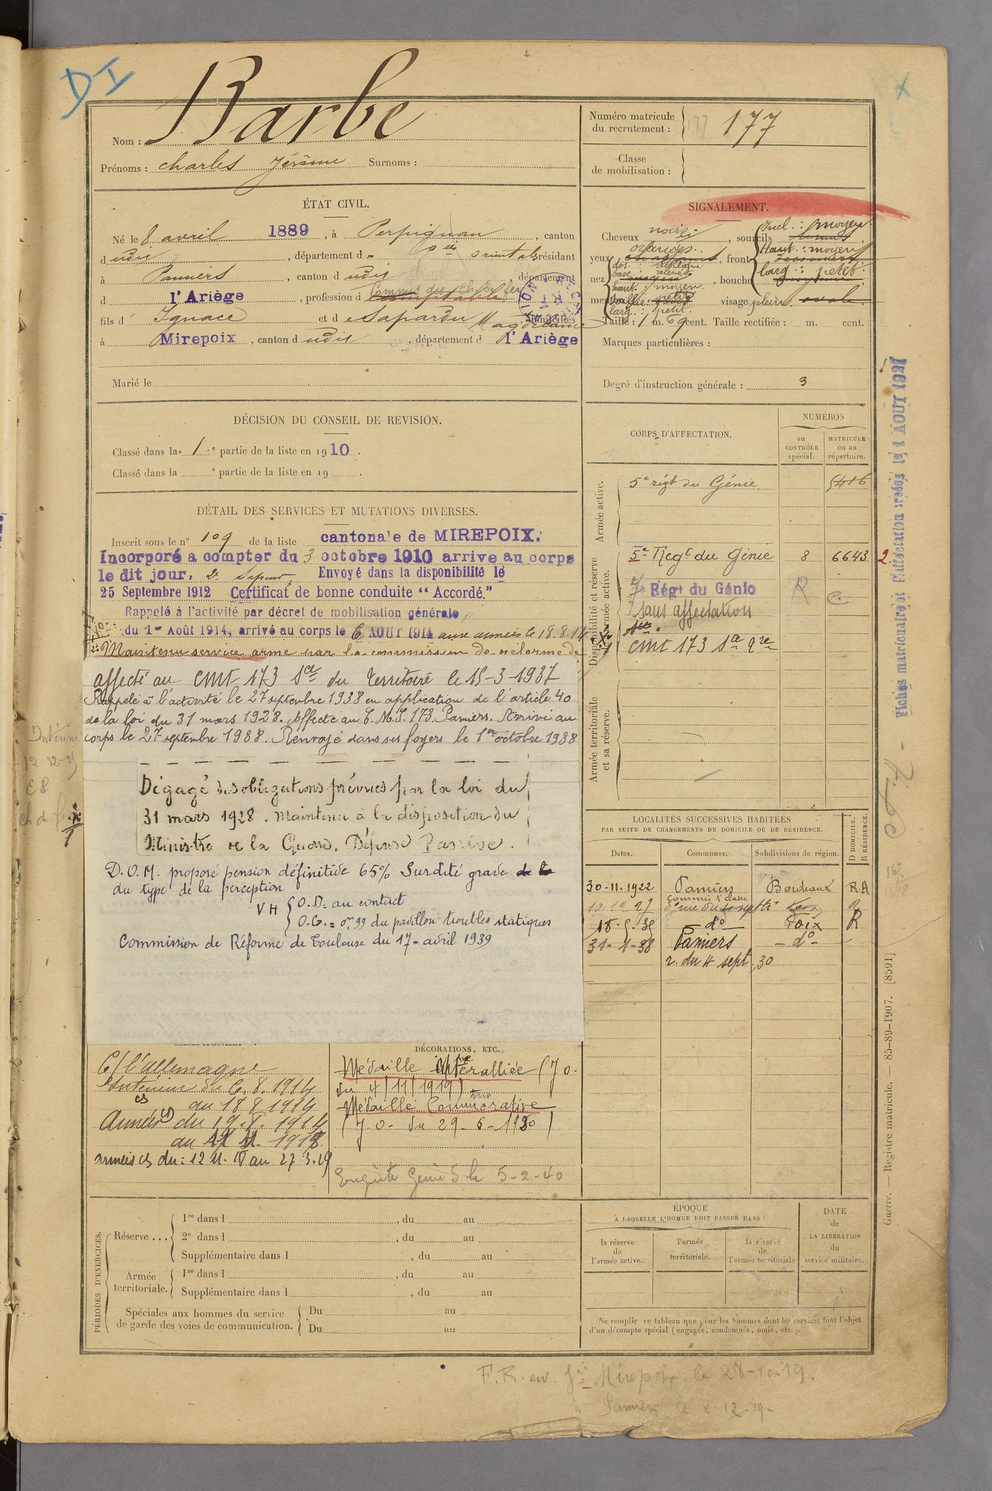 D I
Nom : Barbe
Prénoms : Charles Jérôme Surnoms :
Numéro matricule du recrutement : 177
Classe de mobilisation :
ÉTAT CIVIL.
Né le 8 avril 1889, à Perpignan, canton
d udit, département d Oales orientales, résidant
à Pamiers, canton d udit, département
d l'Ariège, profession d Commis des
fils d' Ignace et d Sapardu Magdelaine
à Mirepoix, canton d udit, département d l'Ariège
Marié le
SIGNALEMENT.
Cheveux noirs, sourcils
yeux, front
Incl. : moyen
Haut. : moyen
larg : petit
nez, bouche
visage plein
Taille : 1 m. 69 cent. Taille rectifiée : m. cent.
Marques particulières :
Degré d'instruction générale : 3
DÉCISION DU CONSEIL DE REVISION.
Classé dans la 1re partie de la liste en 1910.
Classé dans la e partie de la liste en 19
DÉTAIL DES SERVICES ET MUTATIONS DIVERSES.
Inscrit sous le n° 109 de la liste cantonale de MIREPOIX.
Incorporé à compter du 3 octobre 1910 arrive au corps
le dit jour, 2e Sapeur, Envoyé dans la disponibilité le
25 Septembre 1912 Certificat de bonne conduite "Accordé."
Rappelé à l'activité par décret de mobilisation générale
du 1er Août 1914, arrivé au corps le 6 AOUT 1914 aux armées le 18.8.14
Maintenu service armé par la commission de réforme de
affecté au cmt 173 Son du Territoire le 15-3-1937
Rappelé à l'activité le 27 septembre 1938 en application de l'article 40
de la loi du 31 mars 1928. Affecté au C.M.I. 173 Pamiers. Arrivé au
corps le 27 septembre 1938. Renvoyé dans ses foyers le 1er octobre 1938
Dégagé des obligations prévues par la loi du
31 mars 1928. Maintenu à la disposition du
Ministre de la Guerre, Défense Passive.
D.O.M. proposé pension définitive 65% Surdité grave
du type de la perception
VH O.D. au contact
O.G. = 0m,99 du pavillon troubles statiques
Commission de Réforme de Toulouse du 17 avril 1939
CORPS D'AFFECTATION.
NUMÉROS
au CONTRÔLE spécial.
MATRICULE ou au répertoire.
Armée active.
5e régt du Génie
Disponibilité et réserve de l'armée active.
5e Régt du Génie 8 6643
7e Régt du Génie
Sans affectation
cmt 173
Armée territoriale et sa réserve.
Fiches matricule et d'affectation créées le 1 AOUT 1927
LOCALITÉS SUCCESSIVES HABITÉES
PAR SUITE DE CHANGEMENTS DE DOMICILE OU DE RÉSIDENCE.
Dates. Communes. Subdivisions de région. D DOMICILE. R RÉSIDENCE.
30-11.1922 Pamiers Bordeaux R A
10.12.27
18-5-30 do Foix R
31-1-38 Pamiers do
r. du 4 sept. 30
C/ l'Allemagne
Intérieur du 6.8.1914
au 18 8 1914
Armées du 19.8.1914
au 11 11 1918
armées cs du : 12 11. 18 au 27 3.19
DÉCORATIONS, ETC.
Médaille Interalliée (J.O.
du 4/11/1919)
Médaille Commémorative
(J.O. du 29-6-1920)
Enquête Génie 5 le 5-2-40
PÉRIODES D'EXERCICES.
Réserve....
1re dans l , du au
2e dans l , du au
Supplémentaire dans l , du au
Armée territoriale.
1re dans l , du au
Supplémentaire dans l , du au
Spéciales aux hommes du service de garde des voies de communication.
Du au
Du au
ÉPOQUE
À LAQUELLE L'HOMME DOIT PASSER DANS :
la réserve de l'armée active.
l'armée territoriale.
la réserve de l'armée territoriale
DATE de LA LIBÉRATION du service militaire.
Ne remplir ce tableau que pour les hommes dont les services font l'objet
d'un décompte spécial (engagés, condamnés, omis, etc.).
Guerre. — Registre matricule. — 85-89-1907. [8591]
F.R. env. Gie Mirepoix le 28-10-19.
Pamiers le 8-12-19-